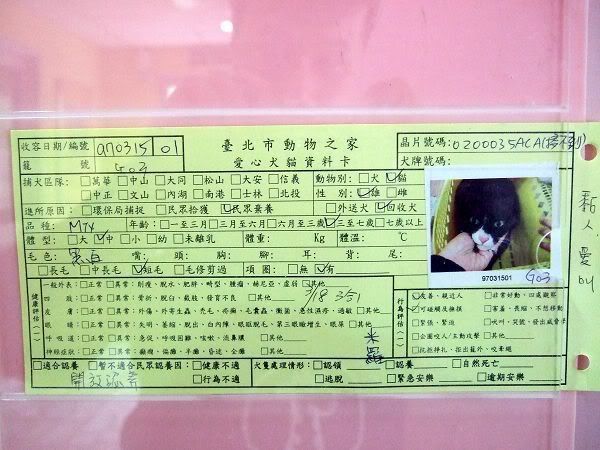 收容日期/編號 970315 01 臺北市動物之家 晶片號碼: 020035ACA(掃不到)
籠 號 G03 愛心犬貓資料卡 犬牌號碼:
捕犬區隊: □萬華□中山□大同□松山□大安□信義 動物別:□犬☑貓
□中正□文山□內湖□南港□士林□北投 性 別:☑雄□雌
進所原因:□環保局捕捉□民眾拾獲☑民眾棄養 □外送犬☑回收犬
品種: MIX 年齡:□一至三月□三月至六月□六月至三歲☑三至七歲□七歲以上
體型:□大☑中□小□幼□未離乳 體重: Kg 體溫: ℃
毛色: 黑白 嘴: 頭: 胸: 腳: 耳: 背: 尾:
□長毛□中長毛☑短毛□毛修剪過 項圈:□無☑有
97031501 G03
黏人、愛叫
健康評估(一)
一般外表:□正常□異常:削瘦、脫水、肥胖、畸型、腫瘤、赫尼亞、虛弱□其他
四 肢:□正常□異常:骨折、脫臼、截肢、發育不良 □其他 3/18 3/51
皮 膚:□正常□異常:外傷、外寄生蟲、禿毛、疥癬、毛囊蟲、黴菌、急性濕疹、過敏□其他
眼 睛:□正常□異常:失明、萎縮、脫出、白內障、眼瞼脫毛、第三眼瞼增生、眼屎□其他
呼吸道:□正常□異常:急促、呼吸困難、咳嗽、流鼻膿□其他
神經症狀:□正常□異常:癲癇、偏癱、半癱、昏迷、全癱 □其他
米羅
行為評估(一)
☑友善、親近人 □非常好動、四處觀察
☑可碰觸及擁撫 □害羞、畏縮、不想移動
□緊張、緊迫 □吠叫、哭號、發出威脅聲
□企圖咬人/主動攻擊 □其他
□抗拒掙扎、拒出籠外、咬牽繩
□適合認養□暫不適合民眾認養因:□健康不適 犬隻處理情形:□認領 ☑認養 □自然死亡
開放認養 □行為不適 □逃脫 □緊急安樂 □逾期安樂